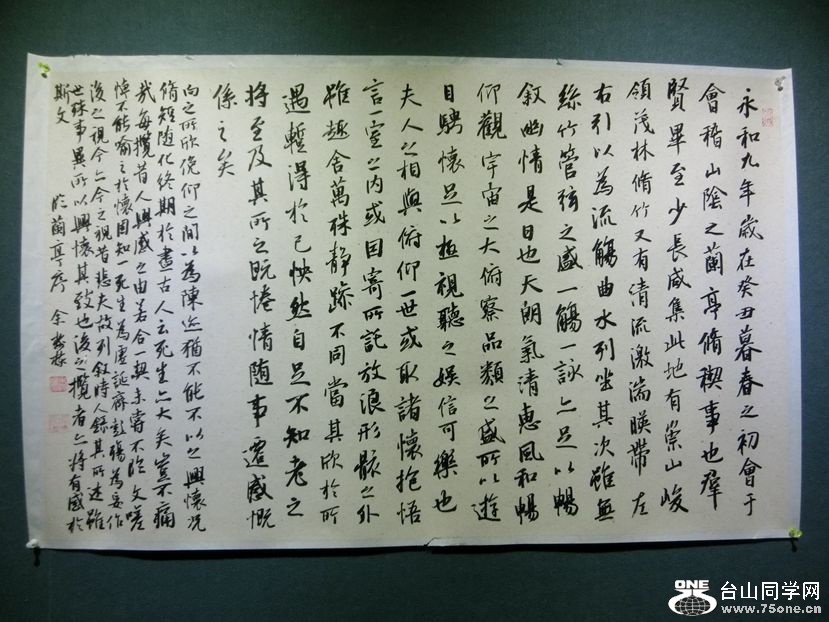 永和九年歲在癸丑暮春之初會于
會稽山陰之蘭亭脩禊事也羣
賢畢至少長咸集此地有崇山峻
領茂林脩竹又有清流激湍暎帶左
右引以為流觴曲水列坐其次雖無
絲竹管弦之盛一觴一詠亦足以暢
敘幽情是日也天朗氣清惠風和暢
仰觀宇宙之大俯察品類之盛所以遊
目騁懷足以極視聽之娛信可樂也
夫人之相與俯仰一世或取諸懷抱悟
言一室之內或因寄所託放浪形骸之外
雖趣舍萬殊靜躁不同當其欣於所
遇暫得於己怏然自足不知老之
將至及其所之既惓情隨事遷感慨
係之矣
向之所欣俛仰之間以為陳迹猶不能不以之興懷況
脩短隨化終期於盡古人云死生亦大矣豈不痛
哉每攬昔人興感之由若合一契未嘗不臨文嗟
悼不能喻之於懷固知一死生為虛誕齊彭殤為妄作
後之視今亦今之視昔悲夫故列敘時人錄其所述雖
世殊事異所以興懷其致也後之攬者亦將有感於
斯文 臨蘭亭序 余
ONE 台山同学网
www.75one.cn